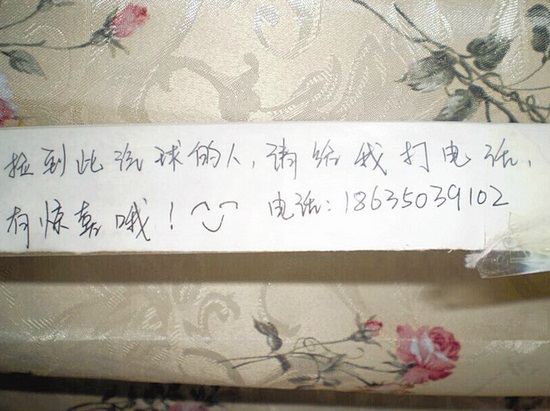 捡到此汽球的人,请给我打电话,
有惊喜哦! 电话:18635039102